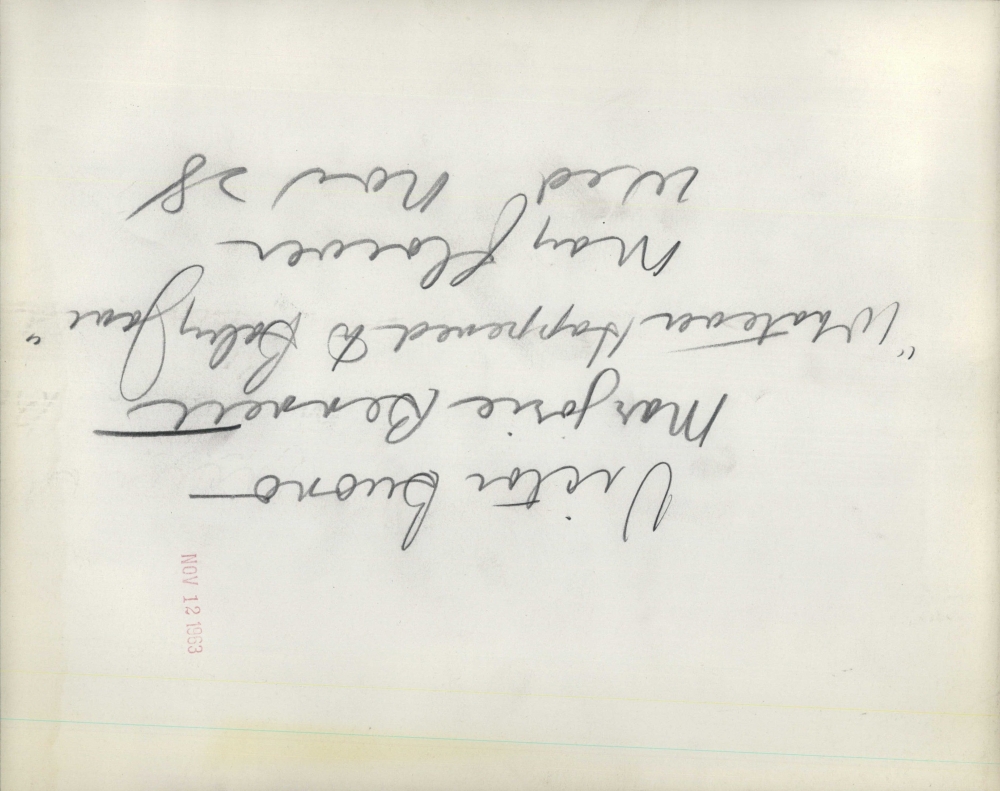 Victor Buono —
Marjorie Bennett
"Whatever Happened to Baby Jane"
Mayflower —
Wed Nov 28
NOV 12 1963